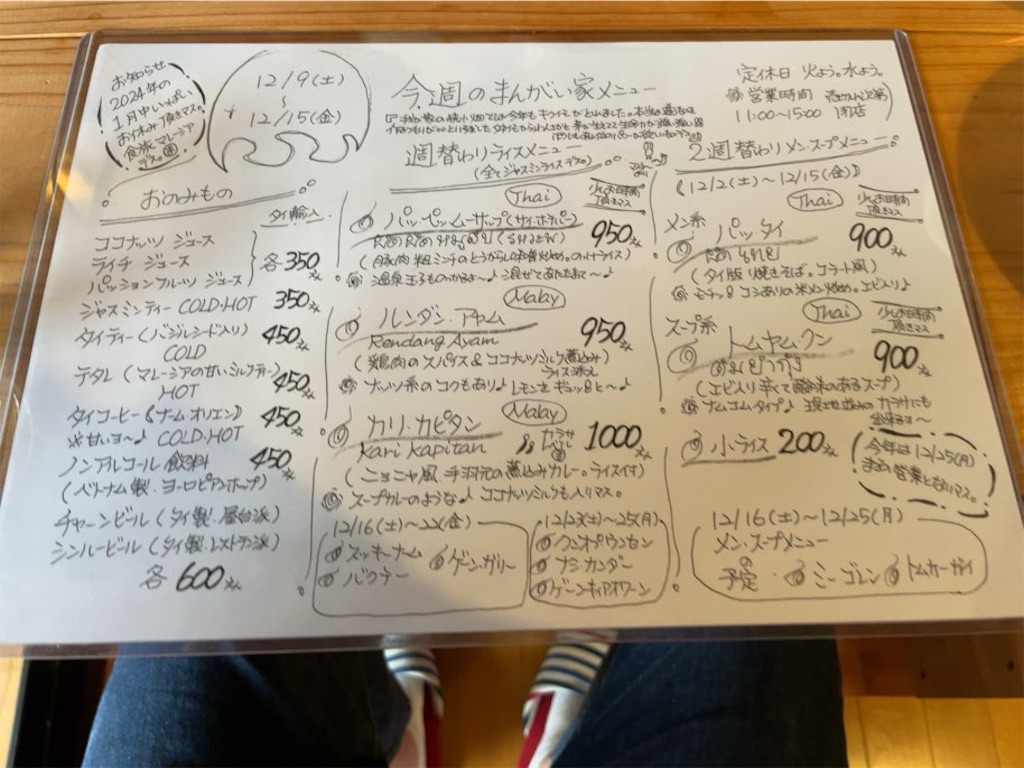 お知らせ
2024年の
1月中いっぱい
お休み頂きマス。
食旅マレーシア
デス。
12/9(土)
〜
12/15(金)
今週のまんがい家メニュー
定休日 火よう。水よう。
営業時間
11:00〜15:00 閉店
週替わりライスメニュー
(全てジャスミンライスデス。)
2週替わりメンスープメニュー
《12/2(土)〜12/15(金)》
おのみもの
タイ輸入
ココナッツ ジュース
ライチ ジュース
パッションフルーツ ジュース
各350
ジャスミンティー COLD・HOT 350
タイティー(バジルシード入り) 450
COLD
テタレ(マレーシアの甘いミルクティー) 450
HOT
タイコーヒー(ナーム・オリエン) 450
甘いヨ〜♪ COLD・HOT
ノンアルコール飲料 450
(ベトナム製・ヨーロピアンホップ)
チャーンビール(タイ製・屋台派)
シンハービール(タイ製・レストラン派)
各600
Thai
少しお時間
頂きマス
950
(豚肉 粗ミンチのとうがらしお酢炒め。のっけライス)
温泉玉子ものっかるよ〜♪混ぜてあたたまて〜♪
Malay
ルンダン・アヤム 950
Rendang Ayam
(鶏肉のスパイス&ココナッツミルク煮込み)
ライス添え
ナッツ系のコクもあり♪レモンをギュッと〜♪
Malay
カリ・カピタン 1000
Kari kapitan
(ニョニャ風・手羽元の煮込みカレー。ライス付)
スープカレーのような♪ココナッツミルクも入りマス。
12/16(土)〜22(金)
スッキーナーム
ゲーン・ガリー
バクテー
12/23(土)〜25(月)
クンオプウンセン
ナシカンダー
ゲーンキィアオワーン
Thai
少しお時間
頂きマス
メン系
パッタイ 900
(タイ版焼きそば。コラート風)
モチッとコシありの米メン炒め。エビ入り♪
Thai
少しお時間
頂きマス
スープ系
トムヤムクン 900
(エビ入り辛くて酸味のあるスープ)
小ライス 200
今年は12/25(月)
まで営業となりマス。
12/16(土)〜12/25(月)
メン・スープメニュー
予定 ミーゴレン トムカーガイ